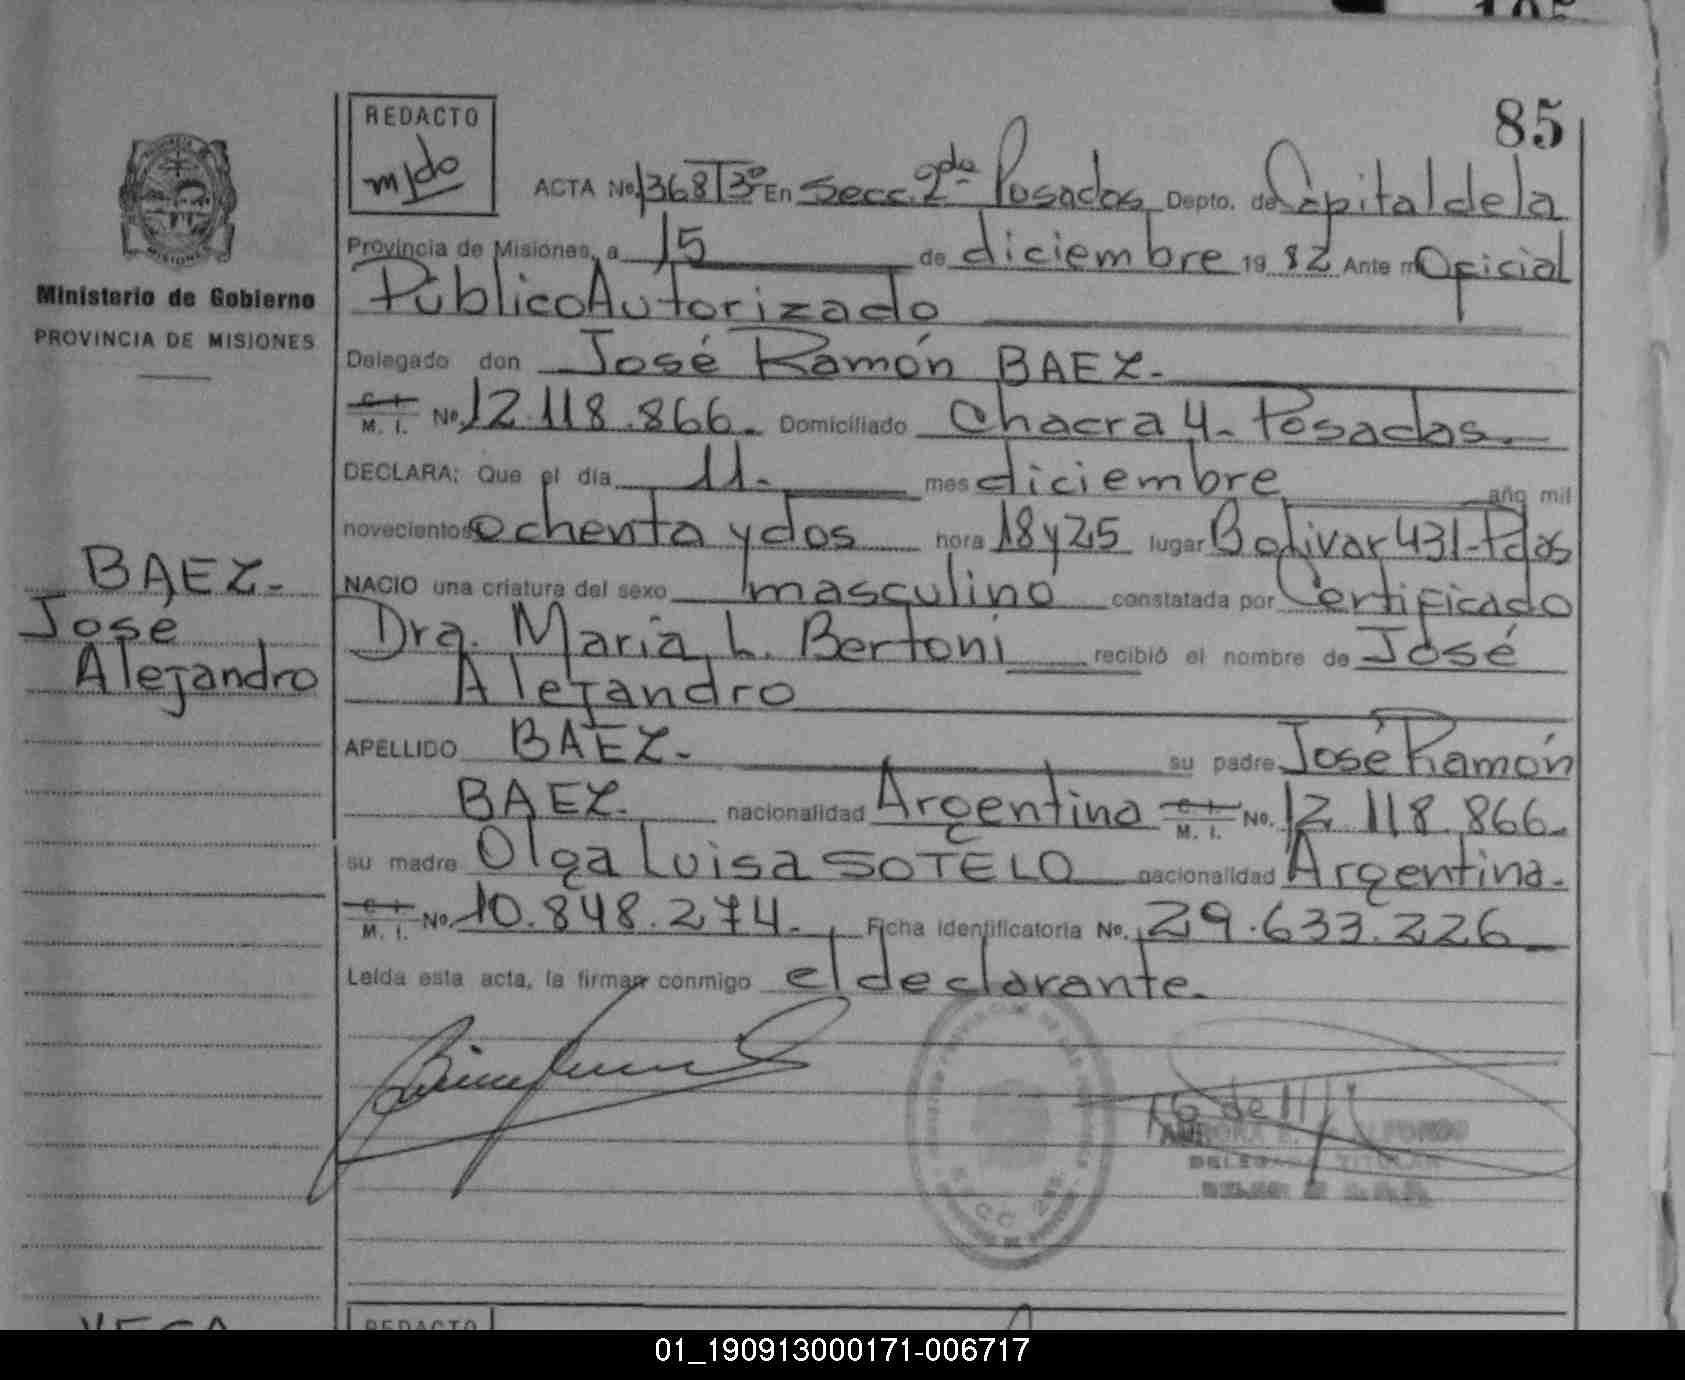 85
REDACTO
ACTA No. 1368 T 3º En Secc. 2da Posadas Depto. de Capital de la
Provincia de Misiones, a 15 de diciembre 19 82 Ante mi Oficial
Ministerio de Gobierno
Público Autorizado
PROVINCIA DE MISIONES
Delegado don José Ramón BAEZ.
C. I. M. I. No. 12.118.866. Domiciliado Chacra 4 - Posadas.
DECLARA: Que el día 11. mes diciembre año mil
novecientos ochenta y dos hora 18 y 25 lugar Bolivar 431 - Pdas
BAEZ.
NACIO una criatura del sexo masculino constatada por Certificado
José
Dra. Maria L. Bertoni recibió el nombre de José
Alejandro
Alejandro
APELLIDO BAEZ. su padre José Ramón
BAEZ. nacionalidad Argentina C. I. M. I. No. 12.118.866.
su madre Olga Luisa SOTELO nacionalidad Argentina.
C. I. M. I. No. 10.848.274. Ficha identificatoria No. 29.633.226
Leída esta acta, la firman conmigo el declarante.
DELEGADA TITULAR
REDACTO
01_190913000171-006717